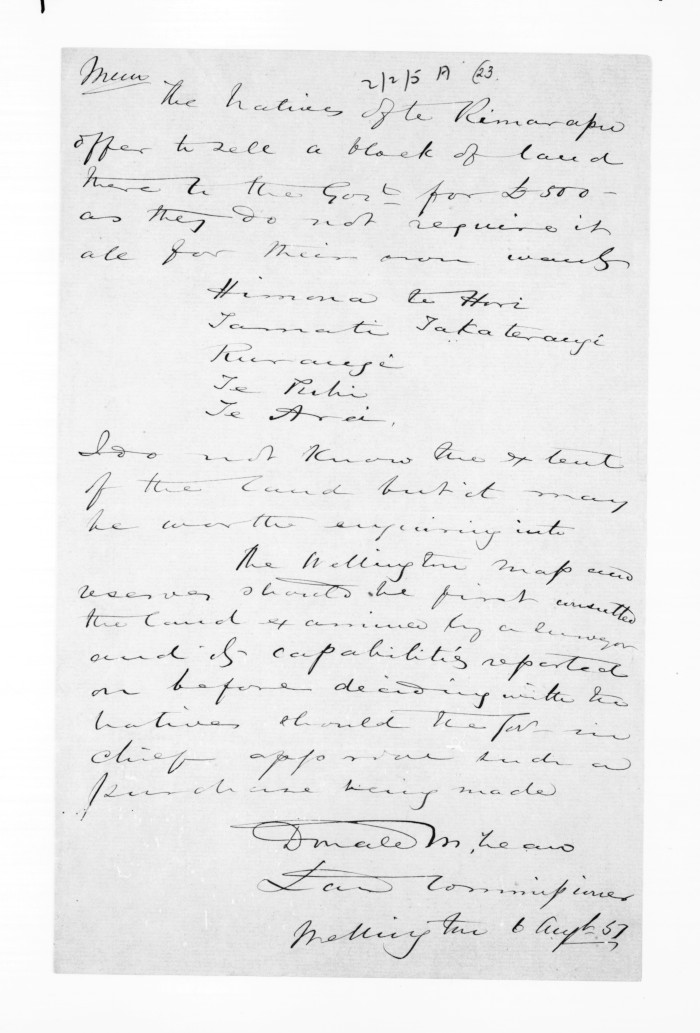 Mem
2/2/5 A (23.
The Natives of te Rimarapu
offer to sell a block of land
there to the Govt for £500 -
as they do not require it
all for their own wants
Himona te Hori
Tamati Takaterangi
Kurangi
Te Puhi
Te Arei.
I do not know the extent
of the land but it may
be worth enquiring into
The Wellington map and
reserves should be first consulted
the land examined by a surveyor
and its capabilities reported
on before deciding with the
natives should the Govr in
chief approve such a
purchase being made
Donald McLean
Land Commissioner
Wellington 6 Augt. 51